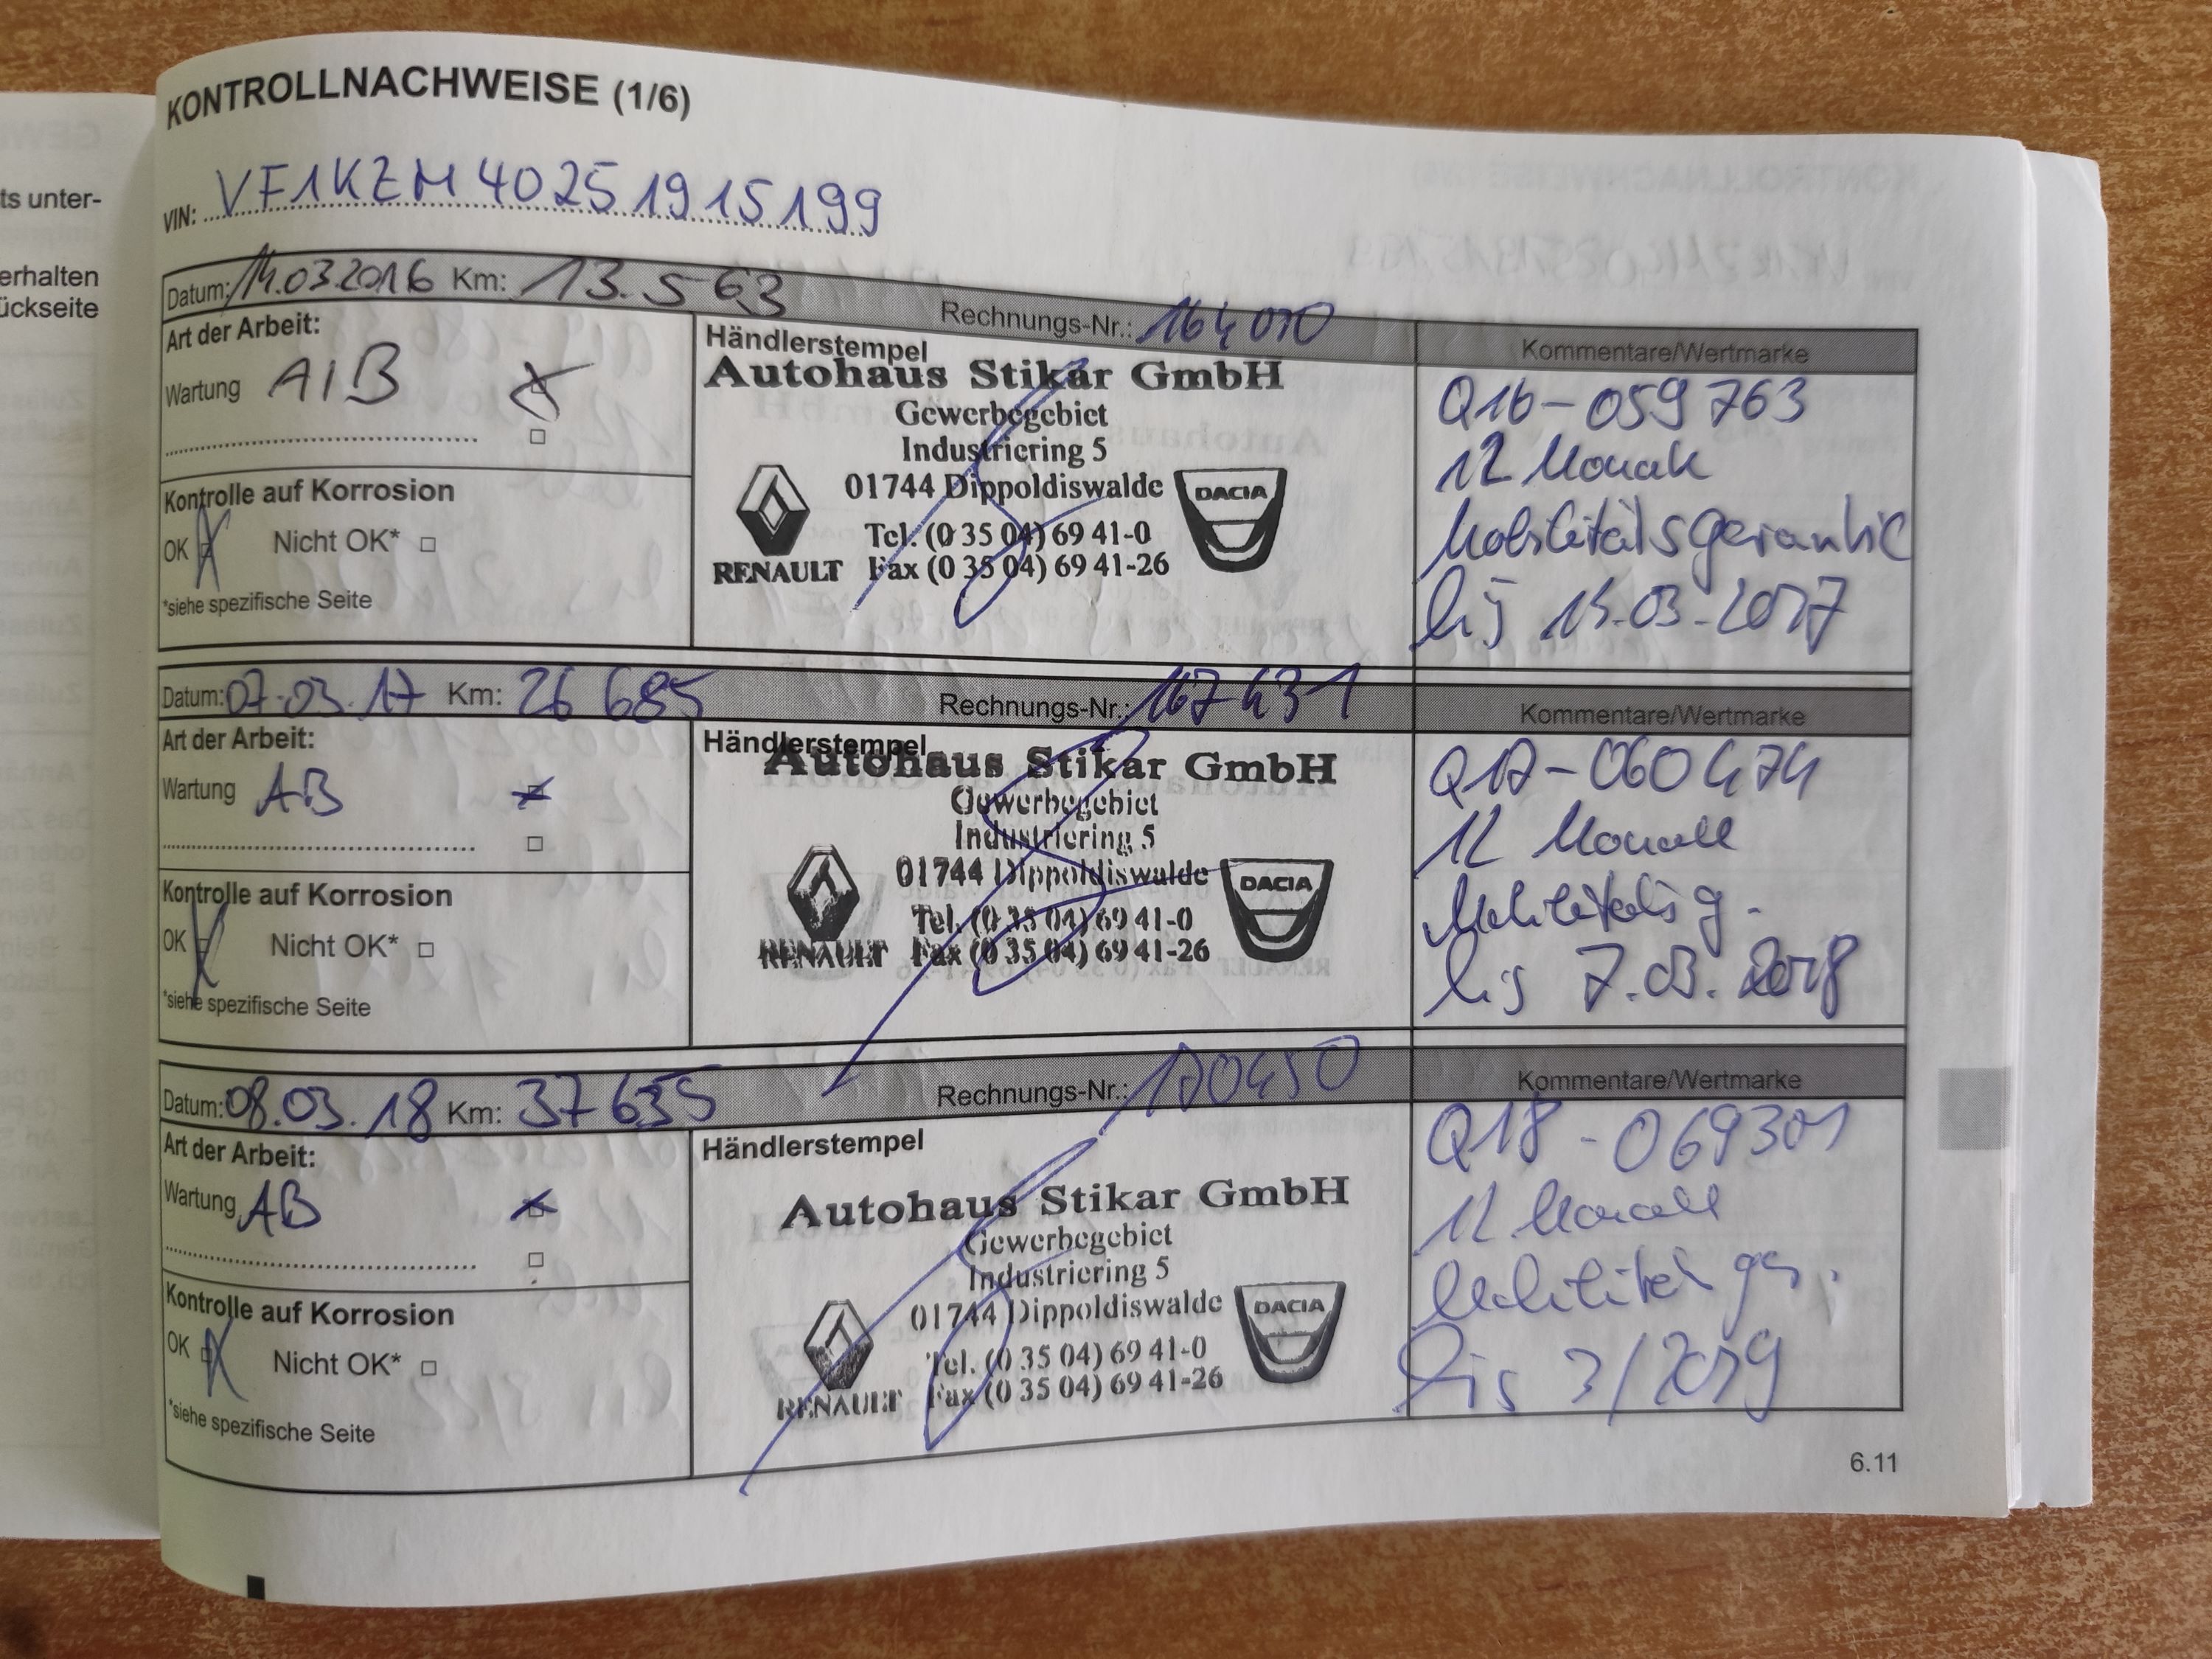 ts unter-
erhalten
ückseite
KONTROLLNACHWEISE (1/6)
VIN: VF1KZM40251915199
Datum: 14.03.2016 Km: 13.563 Rechnungs-Nr.: 164010
Art der Arbeit:
Wartung A1B
Kontrolle auf Korrosion
OK Nicht OK*
*siehe spezifische Seite
Händlerstempel
Autohaus Stikar GmbH
Gewerbegebiet
Industriering 5
01744 Dippoldiswalde
Tel. (0 35 04) 69 41-0
Fax (0 35 04) 69 41-26
RENAULT
DACIA
Kommentare/Wertmarke
Q16-059763
12 Monate
Mobilitätsgarantie
bis 14.03.2017
Datum: 07.03.17 Km: 26 685 Rechnungs-Nr.: 167431
Art der Arbeit:
Wartung AB
Kontrolle auf Korrosion
OK Nicht OK*
*siehe spezifische Seite
Händlerstempel
Autohaus Stikar GmbH
Gewerbegebiet
Industriering 5
01744 Dippoldiswalde
Tel. (0 35 04) 69 41-0
Fax (0 35 04) 69 41-26
RENAULT
DACIA
Kommentare/Wertmarke
Q17-060474
12 Monate
Mobilitätsg.
bis 7.03.2018
Datum: 08.03.18 Km: 37 635 Rechnungs-Nr.: 170450
Art der Arbeit:
Wartung AB
Kontrolle auf Korrosion
OK Nicht OK*
*siehe spezifische Seite
Händlerstempel
Autohaus Stikar GmbH
Gewerbegebiet
Industriering 5
01744 Dippoldiswalde
Tel. (0 35 04) 69 41-0
Fax (0 35 04) 69 41-26
RENAULT
DACIA
Kommentare/Wertmarke
Q18-069301
12 Monate
bis 3/2019
6.11